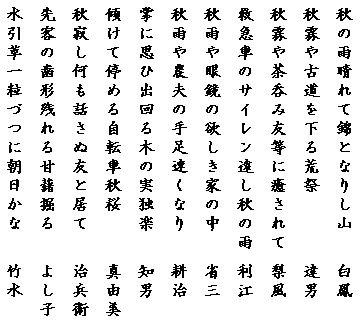 秋の雨晴れて錦となりし山 白鳳
秋霖や古道を下る荒祭 達男
秋霖や茶呑み友等に癒されて 梨風
救急車のサイレン遠し秋の雨 利江
秋雨や眼鏡の欲しき家の中 省三
秋雨や農夫の手足速くなり 耕治
掌に思ひ出回る木の実独楽 知男
傾けて停める自転車秋桜 真由美
秋寂し何も話さぬ友と居て 治兵衛
先客の歯形残れる甘藷掘る よし子
水引草一粒づつに朝日かな 竹水